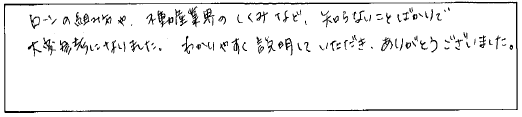 ローンの組み方や、不動産業界のしくみなど、知らないことばかりで
大変参考になりました。わかりやすく説明していただき、ありがとうございました。